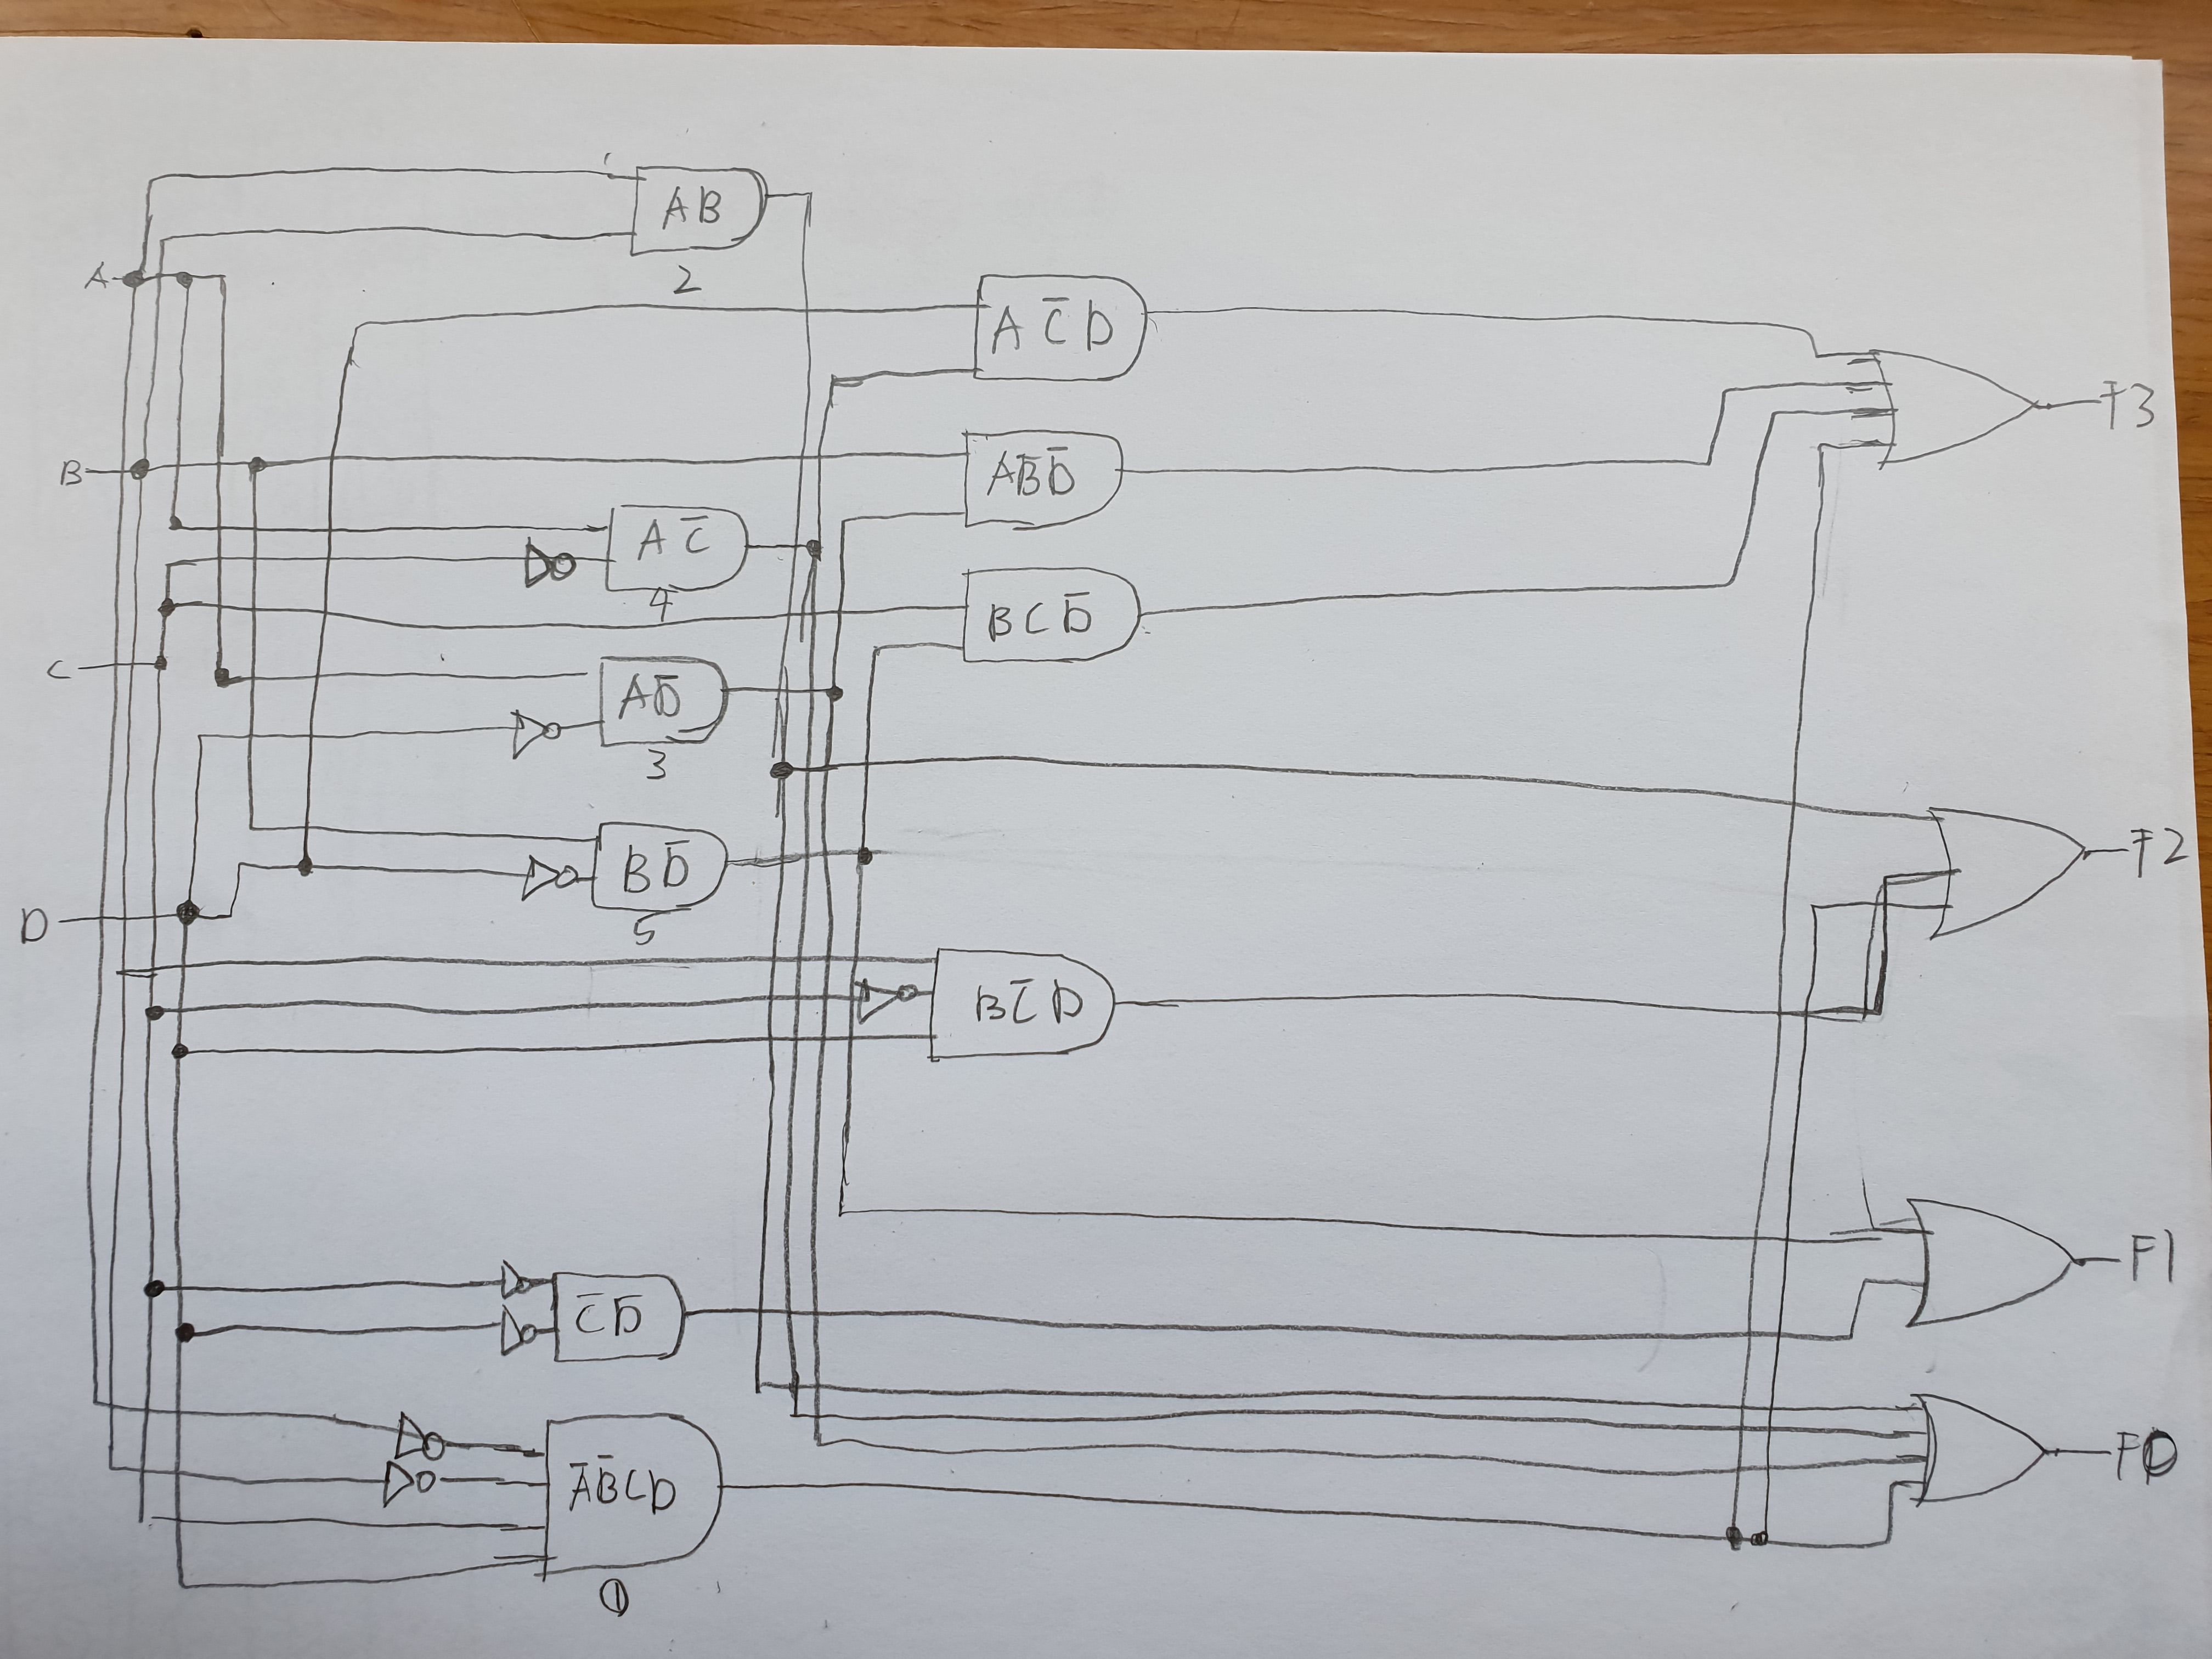 A
B
C
D
AB
2
AC̅
4
AD̅
3
BD̅
5
C̅D̅
A̅B̅CD
1
AC̅D
ABD̅
BCD̅
BC̅D
F3
F2
F1
F0